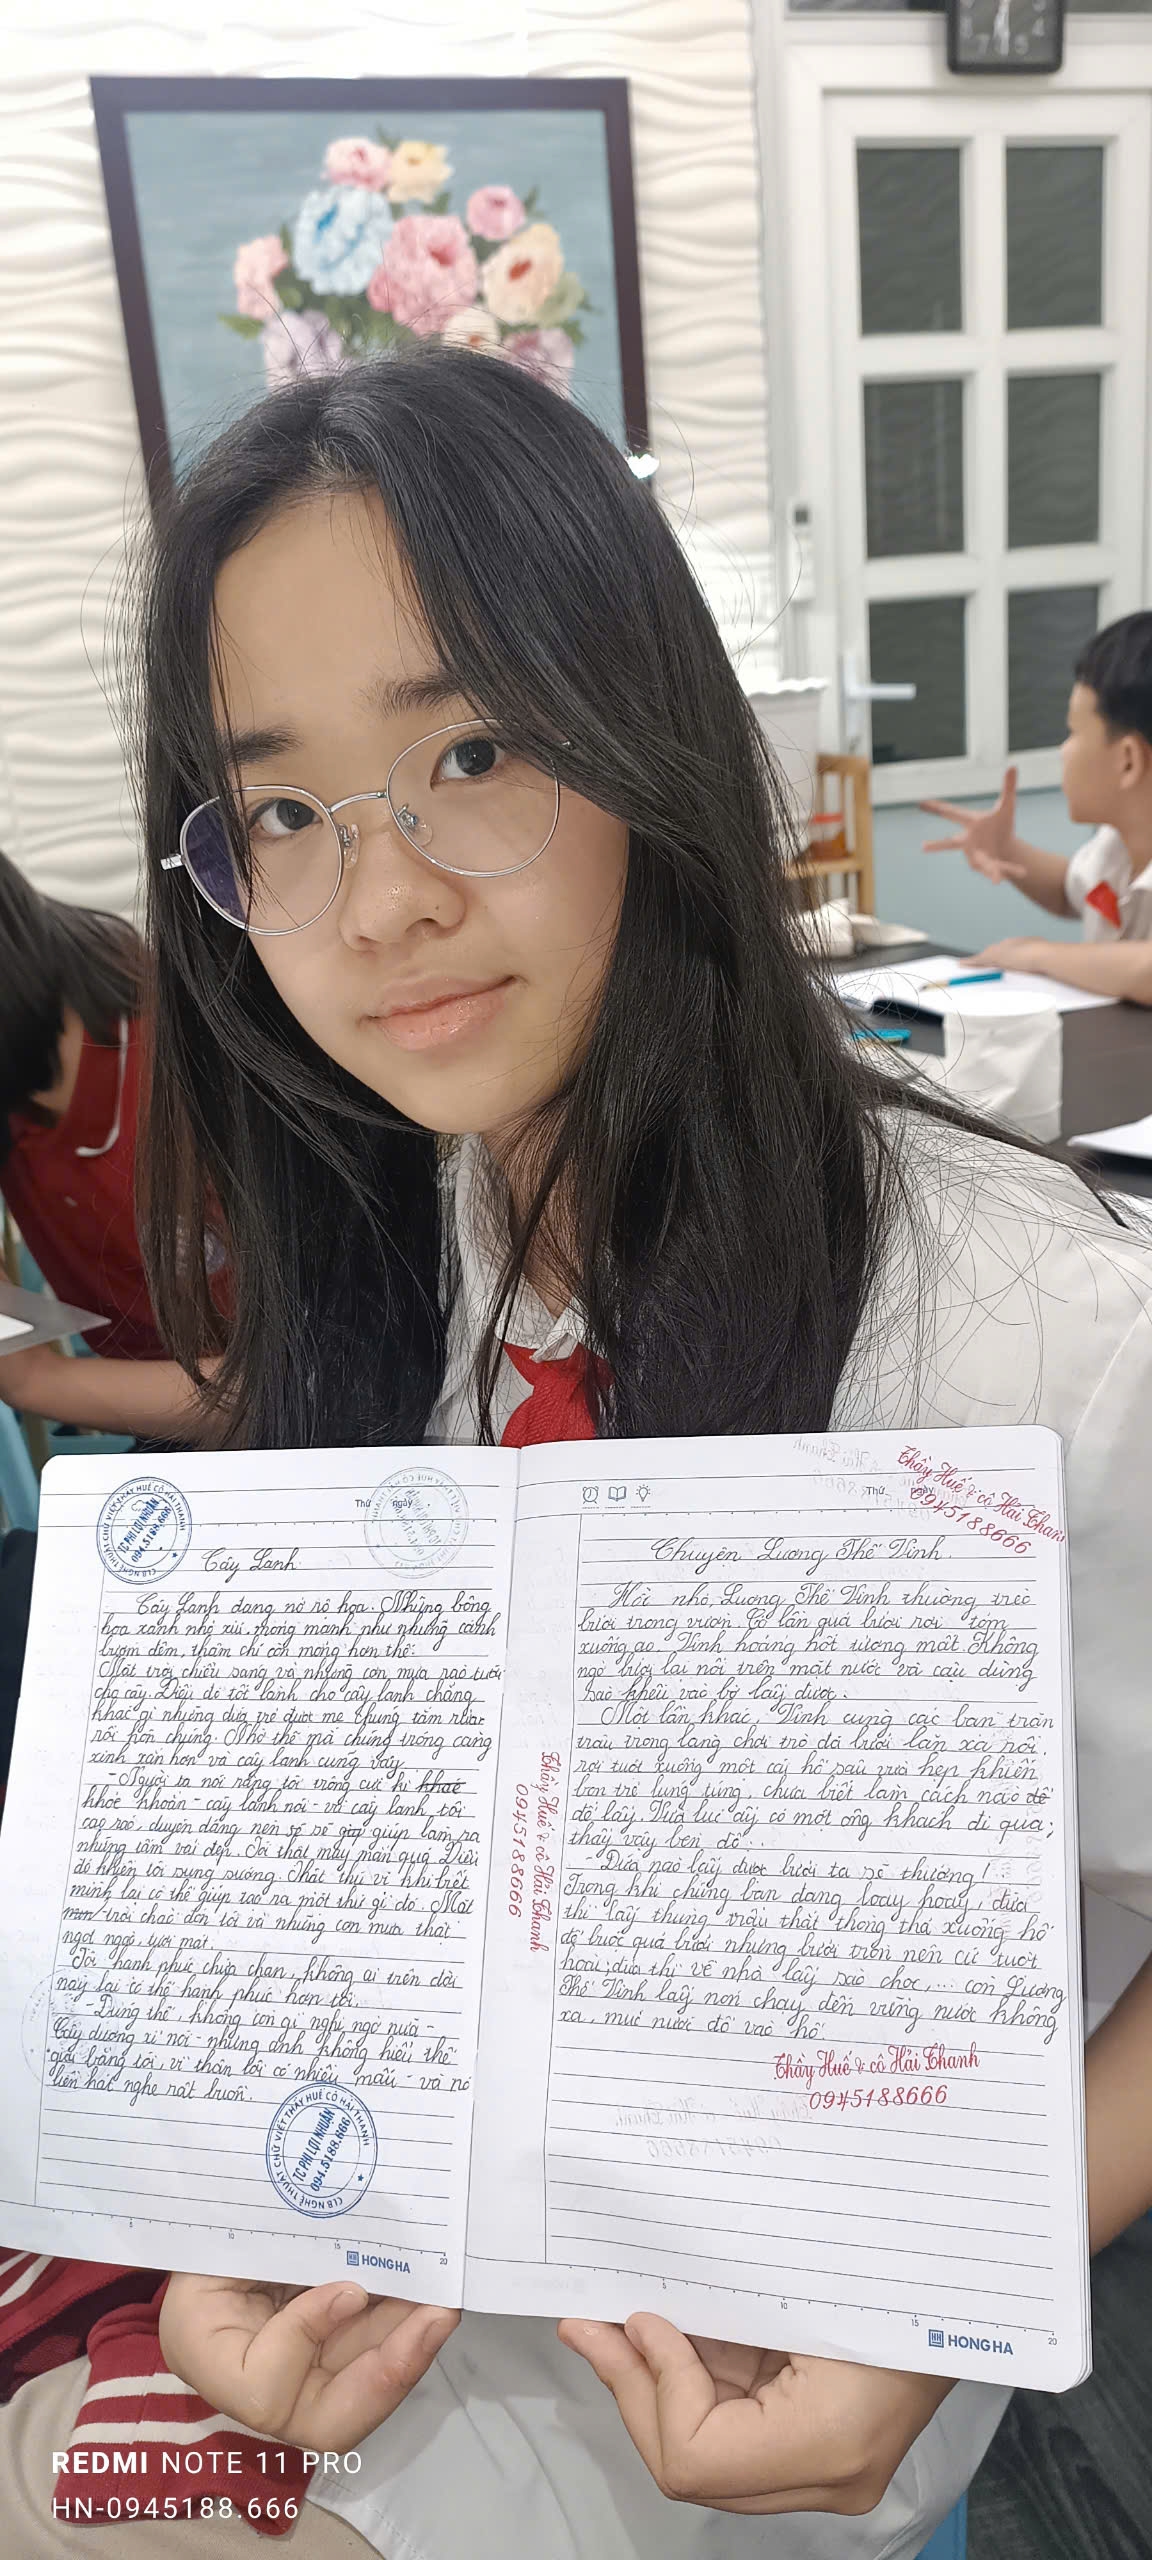 Thứ ngày
CLB NGHỆ THUẬT CHỮ VIỆT THẦY HUẾ CÔ HẢI THANH
TC PHI LỢI NHUẬN
094.5188.666
Cây Lanh
Cây Lanh đang nở rộ hoa. Những bông
hoa xanh nhỏ xíu, mỏng manh như những cánh
bướm đêm, thậm chí còn mỏng hơn thế.
Mặt trời chiếu sáng và những cơn mưa rào tưới
cho cây. Điều đó tốt lành cho cây lanh chẳng
khác gì những đứa trẻ được mẹ chúng tắm rửa
rồi hôn chúng. Nhờ thế mà chúng trông càng
xinh xắn hơn và cây lanh cũng vậy.
- Người ta nói rằng tôi trông cực kì khoẻ
khỏe khoắn - cây lanh nói - và cây lanh tôi
cao ráo, duyên dáng nên sẽ giúp làm ra
những tấm vải đẹp. Tôi thật may mắn quá. Điều
đó khiến tôi sung sướng. Thật thú vị khi biết
mình lại có thể giúp tạo ra một thứ gì đó. Mặt
trời chào đón tôi và những cơn mưa thật
ngọt ngào, tươi mát.
Tôi hạnh phúc chứa chan, không ai trên đời
này lại có thể hạnh phúc hơn tôi.
- Đúng thế, không còn gì nghi ngờ nữa -
Cây dương xỉ nói - nhưng anh không hiểu thế
giới bằng tôi, vì thân tôi có nhiều mấu - và nó
liền hát nghe rất buồn.
CLB NGHỆ THUẬT CHỮ VIỆT THẦY HUẾ CÔ HẢI THANH
TC PHI LỢI NHUẬN
094.5188.666
5 10 15 20
HONG HA
Thứ ngày
Thầy Huế & cô Hải Thanh
0945188666
Chuyện Lương Thế Vinh
Hồi nhỏ, Lương Thế Vinh thường trèo
bưởi trong vườn. Có lần quả bưởi rơi tõm
xuống ao. Vinh hoảng hốt tưởng mất. Không
ngờ bưởi lại nổi trên mặt nước và cậu dùng
sào khều vào bờ lấy được.
Một lần khác, Vinh cùng các bạn trăn
trâu trong làng chơi trò đá bưởi lăn xa rồi
rơi tuốt xuống một cái hố sâu vừa hẹp khiến
bọn trẻ lúng túng, chưa biết làm cách nào để
để lấy. Vừa lúc ấy có một ông khách đi qua;
thấy vậy bèn đố..
- Đứa nào lấy được bưởi ta sẽ thưởng!
Trong khi chúng bạn đang loay hoay, đứa
thì lấy thừng trâu thắt thòng thả xuống hố
để buộc quả bưởi nhưng bưởi tròn nên cứ tuột
hoài; đứa thì về nhà lấy sào chọc,... còn Lương
Thế Vinh lấy nón chạy đến vũng nước không
xa, múc nước đổ vào hố.
Thầy Huế & cô Hải Thanh
0945188666
Thầy Huế & cô Hải Thanh
0945188666
5 10 15 20
HONG HA
REDMI NOTE 11 PRO
HN-0945188.666